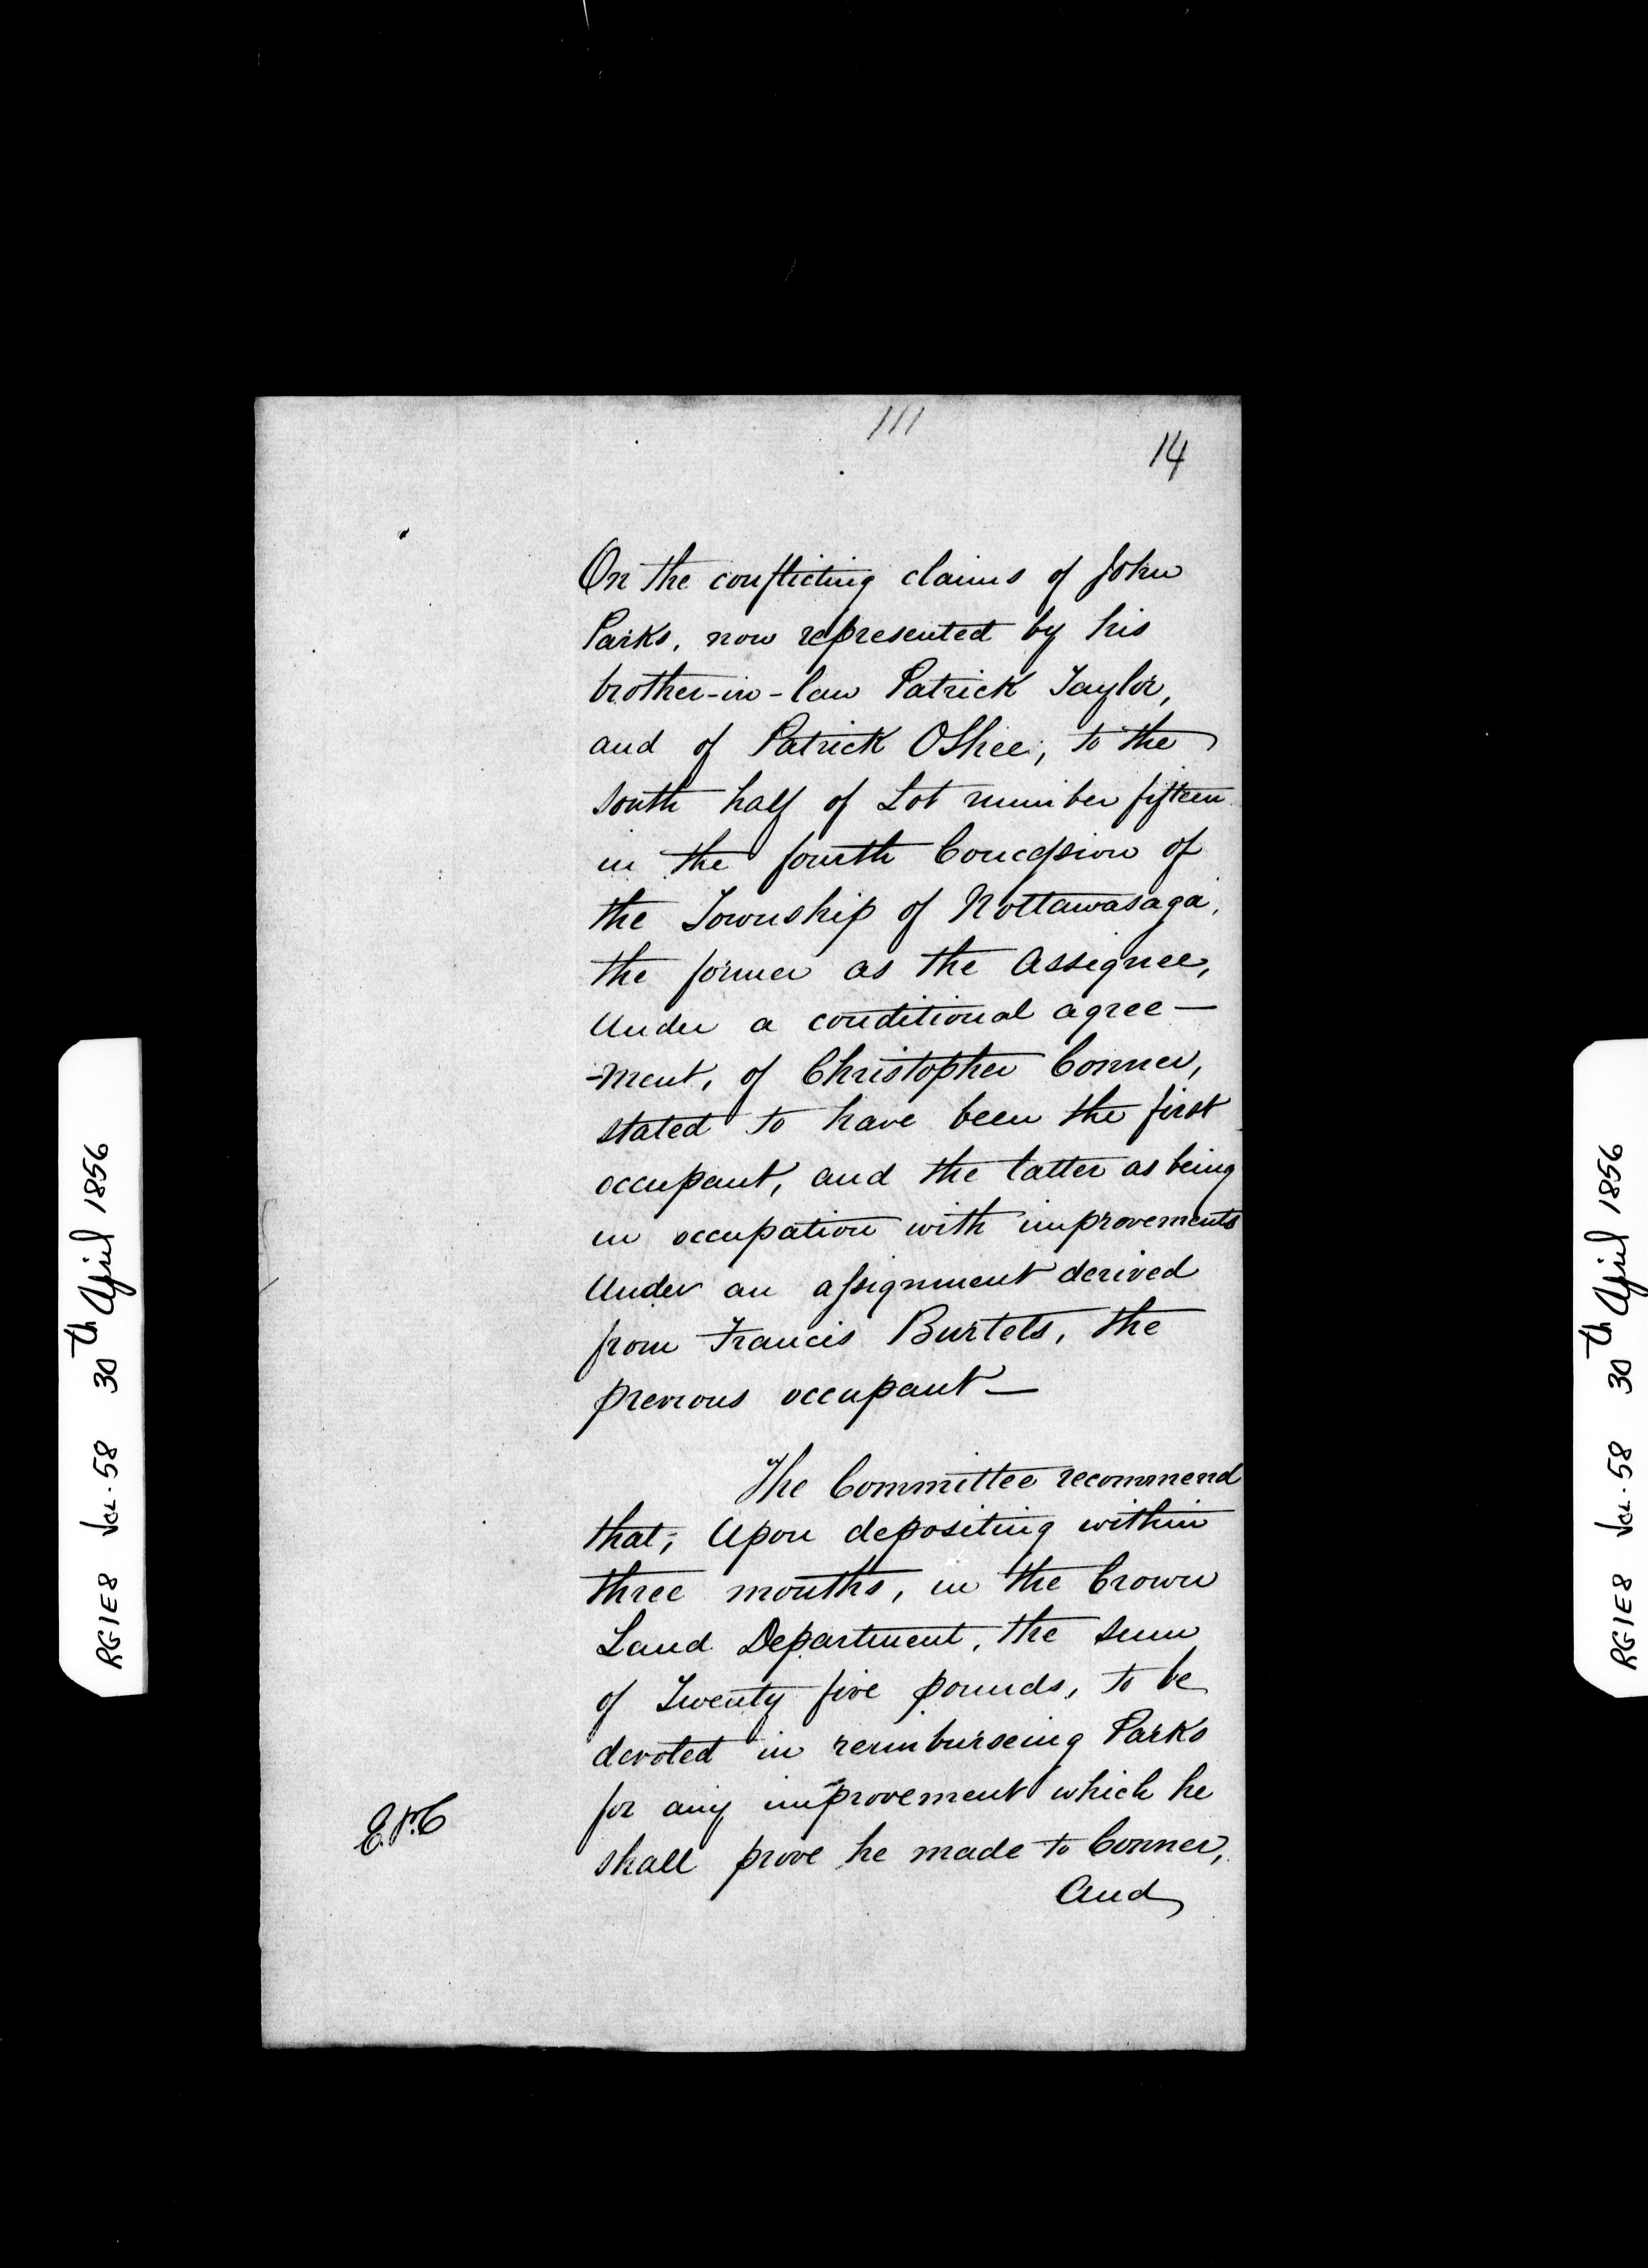 111
14
On the conflicting claims of John
Parks, now represented by his
brother-in-law Patrick Taylor,
and of Patrick OShee, to the
south half of Lot number fifteen
in the fourth Concession of
the Township of Nottawasaga,
the former as the Assignee,
Under a conditional agree-
-ment, of Christopher Conner,
stated to have been the first
occupant, and the latter as being
in occupation with improvements
Under an assignment derived
from Francis Burtels, the
previous occupant—
The Committee recommend
that, Upon depositing within
three months, in the Crown
Land Department, the sum
of Twenty five pounds, to be
devoted in reimburseing Parks
for any improvement which he
shall prove he made to Conner,
And
RG1E8 Vol. 58 30th April 1856
RG1E8 Vol. 58 30th April 1856